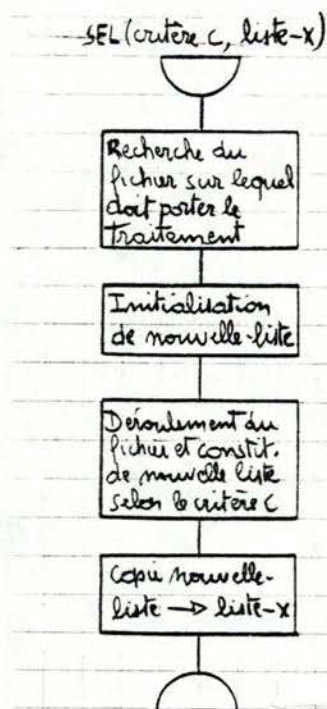 SEL(critère C, liste-X)
Recherche du
fichier sur lequel
doit porter le
traitement
Initialisation
de nouvelle-liste
Déroulement du
fichier et constit.
de nouvelle liste
selon le critère C
Copie nouvelle-
liste → liste-X